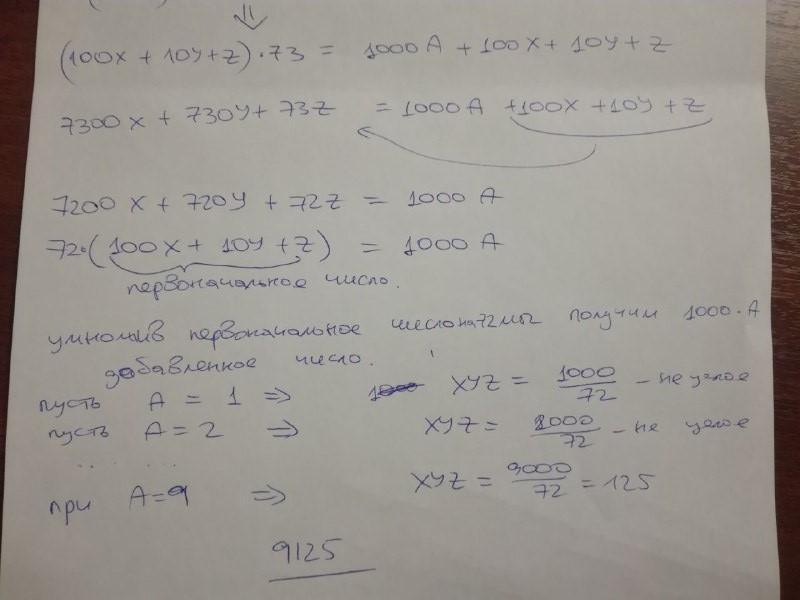 ⇓
(100x + 10y + z) · 73 = 1000 A + 100x + 10y + z
7300 x + 730y + 73z = 1000 A + 100x + 10y + z
7200 x + 720y + 72z = 1000 A
72·(100x + 10y + z) = 1000 A
первоначальное число.
умножив первоначальное число на 72 мы получим 1000·А
добавленное число.
пусть A = 1 ⇒ XYZ = 1000/72 – не целое
пусть A = 2 ⇒ XYZ = 2000/72 – не целое
.. ..
при A=9 ⇒ XYZ = 9000/72 = 125
9125